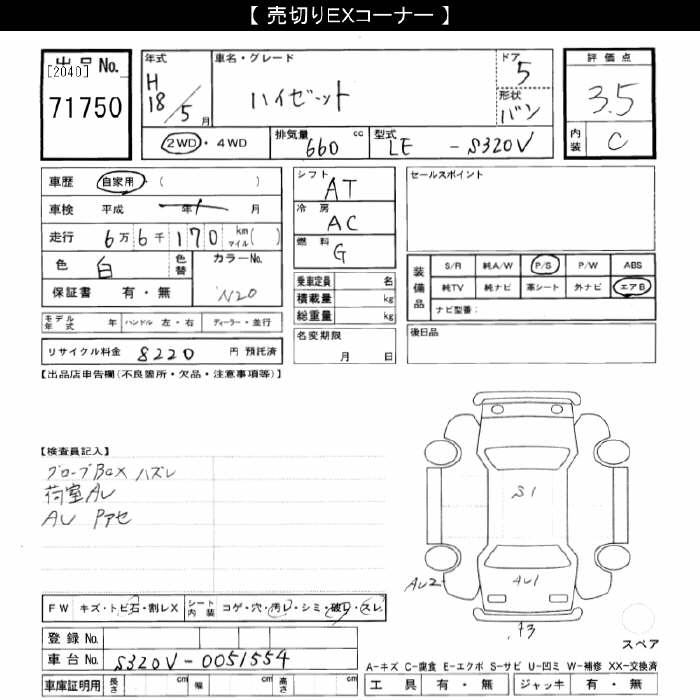 【 売切りEXコーナー 】
出品No.
[2040]
71750
年式
H
18/5月
車名・グレード
ハイゼット
ドア
5
形状
バン
評価点
3.5
内装
C
2WD・4WD
排気量
660 cc
型式
LE - S320V
車歴 自家用・( )
車検 平成 年 月
走行 6万6千170 km マイル( )
色 白 色替 カラーNo.
保証書 有・無 W20
モデル年式 年 ハンドル 左・右 ディーラー・並行
リサイクル料金 8220 円 預託済
シフト
AT
冷房
AC
燃料
G
乗車定員 名
積載量 kg
総重量 kg
名変期限
月 日
セールスポイント
装備品
S/R 純A/W P/S P/W ABS
純TV 純ナビ 革シート 外ナビ エアB
ナビ型番:
後日品
【出品店申告欄(不良箇所・欠品・注意事項等)】
【検査員記入】
グローブBoxハズレ
荷室AU
AU Pアセ
S1
AU2
AU1
A3
スペア
FW キズ・トビ石・割レX シート内装 コゲ・穴・汚レ・シミ・破レ・スレ
登録No.
車台No. S320V-0051554
車庫証明用 長さ cm 幅 cm 高さ cm
A-キズ C-腐食 E-エクボ S-サビ U-凹ミ W-補修 XX-交換済
工具 有・無 ジャッキ 有・無